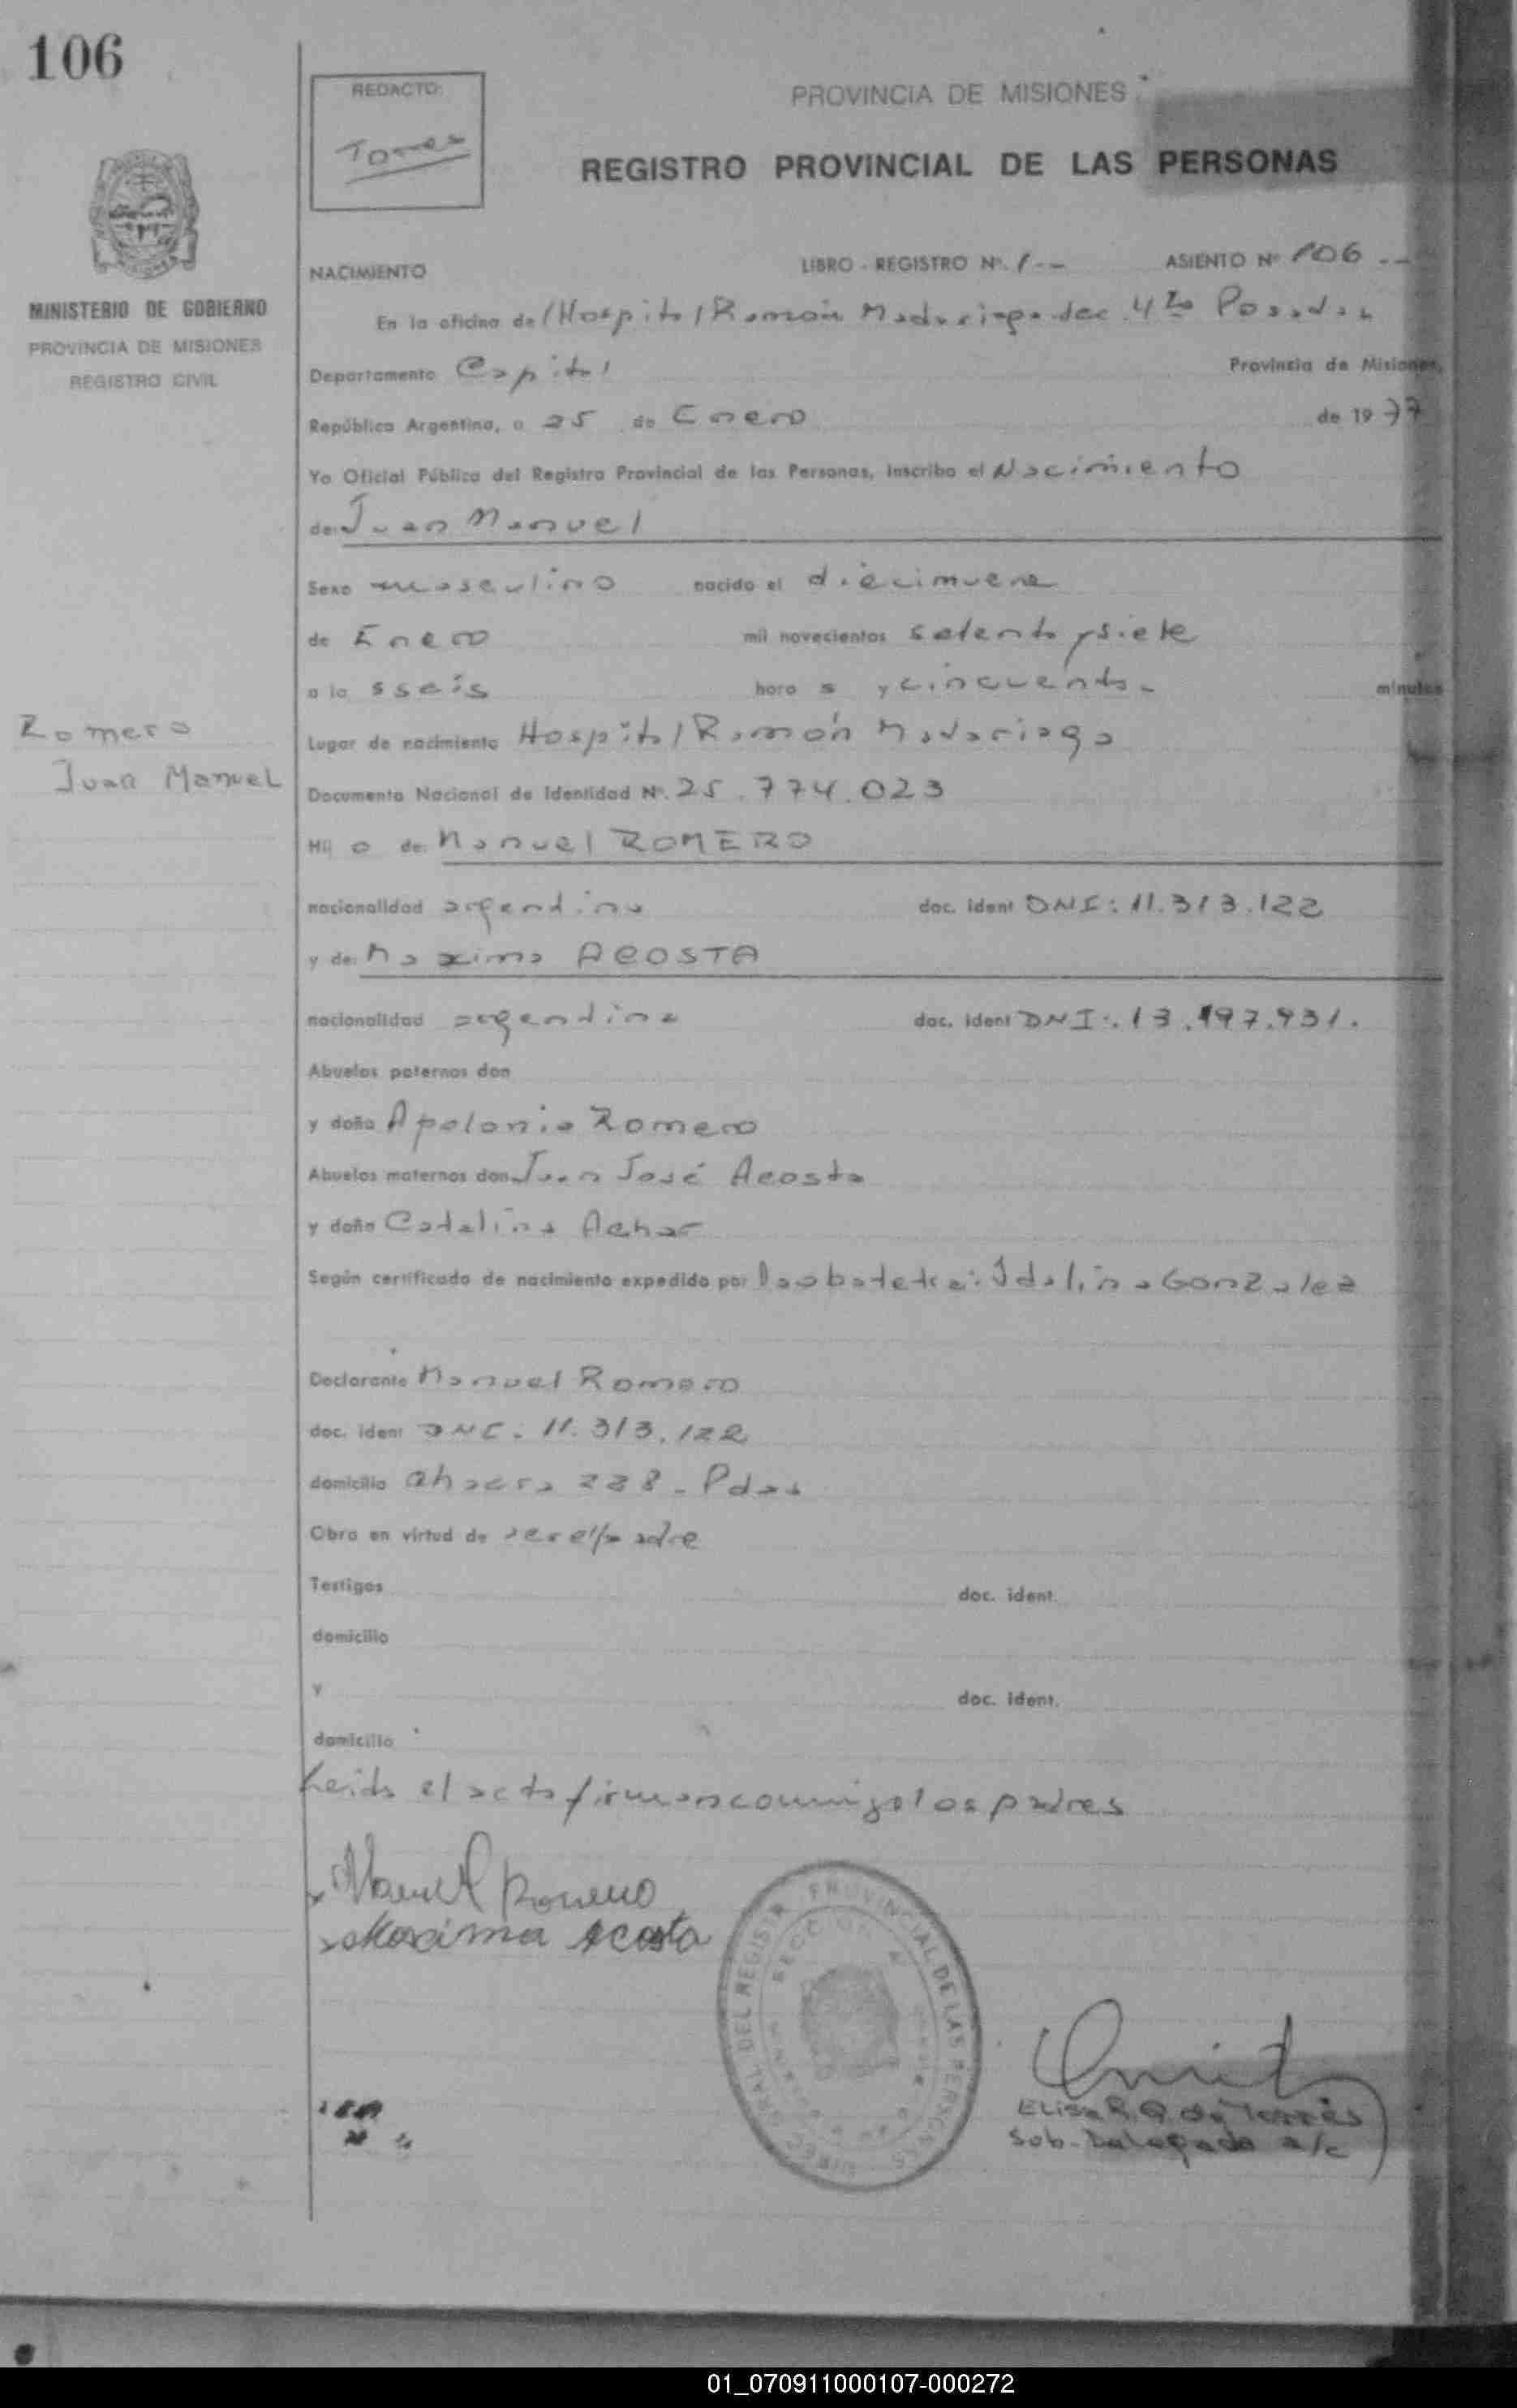 106
REDACTO:
Torres
PROVINCIA DE MISIONES
REGISTRO PROVINCIAL DE LAS PERSONAS
MINISTERIO DE GOBIERNO
PROVINCIA DE MISIONES
REGISTRO CIVIL
NACIMIENTO LIBRO - REGISTRO Nº. 1-- ASIENTO Nº 106 --
En la oficina del Hospital Ramón Madariaga sec. 4ta Posadas
Departamento Capital Provincia de Misiones,
República Argentina, a 25 de Enero de 1977
Yo Oficial Público del Registro Provincial de las Personas, inscribo el Nacimiento
de: Juan Manuel
Sexo masculino nacido el diecinueve
de Enero mil novecientos setenta y siete
a la s seis hora s y cincuenta - minutos
Romero
Juan Manuel
Lugar de nacimiento Hospital Ramón Madariaga
Documento Nacional de Identidad Nº. 25.774.023
Hij o de: Manuel ROMERO
nacionalidad argentina doc. ident DNI: 11.313.122
y de: Maxima ACOSTA
nacionalidad argentina doc. ident DNI:. 13.197.931.
Abuelos paternos don
y doña Apolonia Romero
Abuelos maternos don Juan José Acosta
y doña Catalina
Según certificado de nacimiento expedido por Idalina Gonzalez
Declarante Manuel Romero
doc. ident DNI. 11.313.122
domicilio 228 - Pdas
Obra en virtud de ser el padre
Testigos doc. ident.
domicilio
y doc. ident.
domicilio
Leida el acta firman conmigo los padres
Manuel Romero
Maxima Acosta
DIREC. GRAL DEL REGISTR PROVINCIAL DE LAS PERSONAS
SECCION 4
Elisa R. G. de Torres
Sub-Delegada a/c
01_070911000107-000272